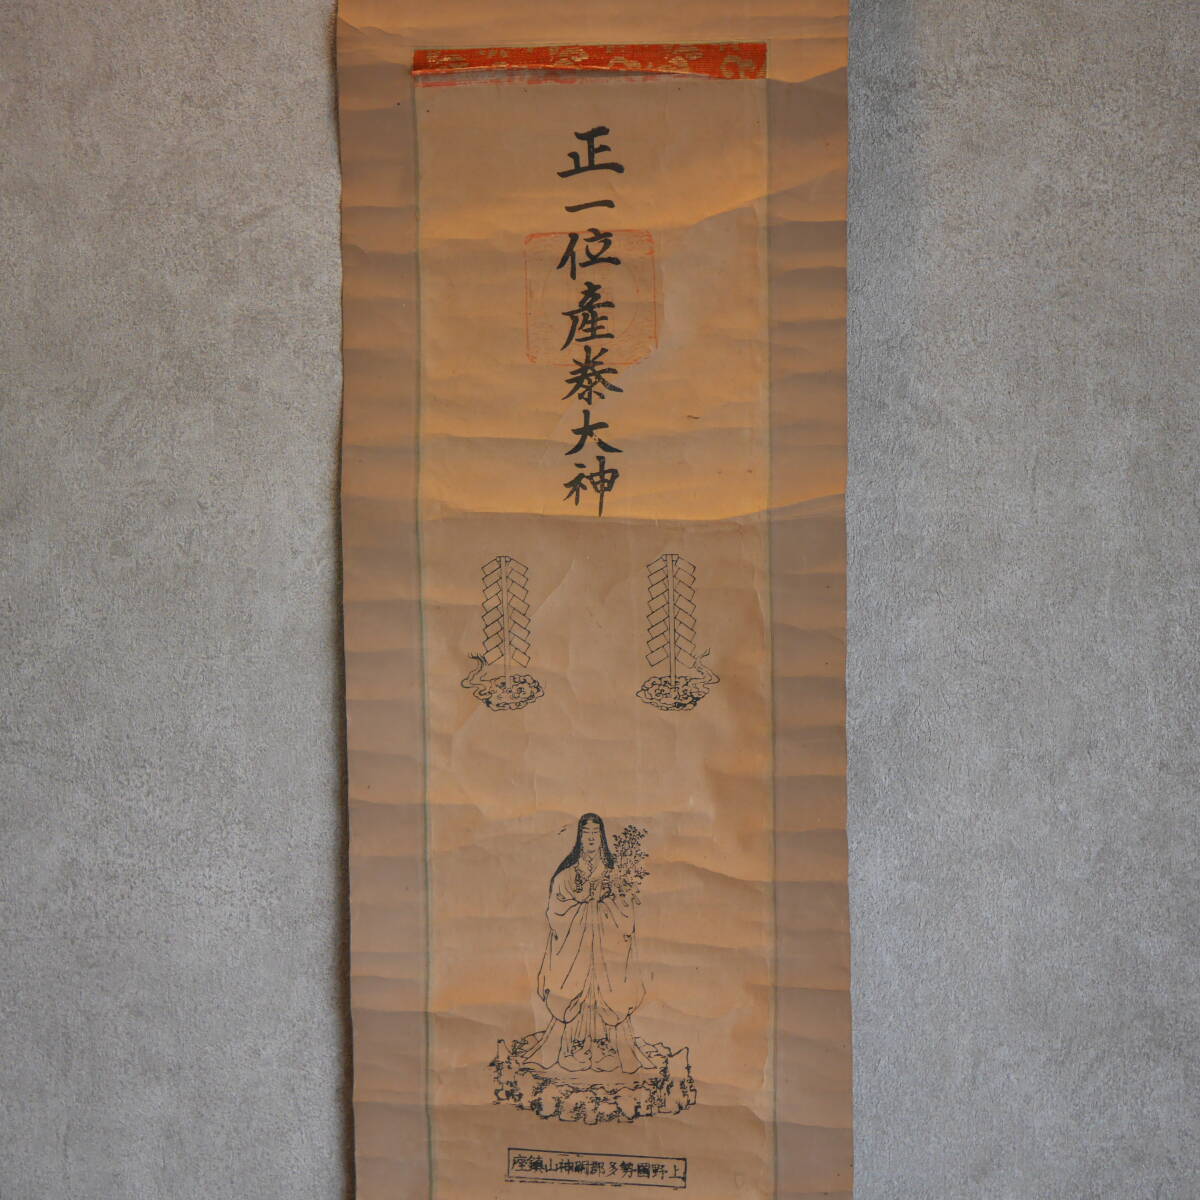 正一位産泰大神
上野國勢多郡嗣神山鎮座